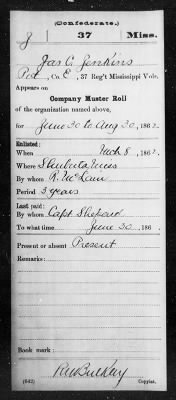 (Confederate.)
J 37 Miss.
Jas C. Jenkins
Pvt, Co. E, 37 Reg't Mississippi Vols.
Appears on
Company Muster Roll
of the organization named above,
for June 30 to Aug 30, 1862.
Enlisted:
When Mch 8, 1862.
Where Shubuta Miss
By whom R. McLain
Period 3 years
Last paid:
By whom Capt Shepard
To what time June 30, 186
Present or absent Present
Remarks:
Book mark:
(642) Copyist.